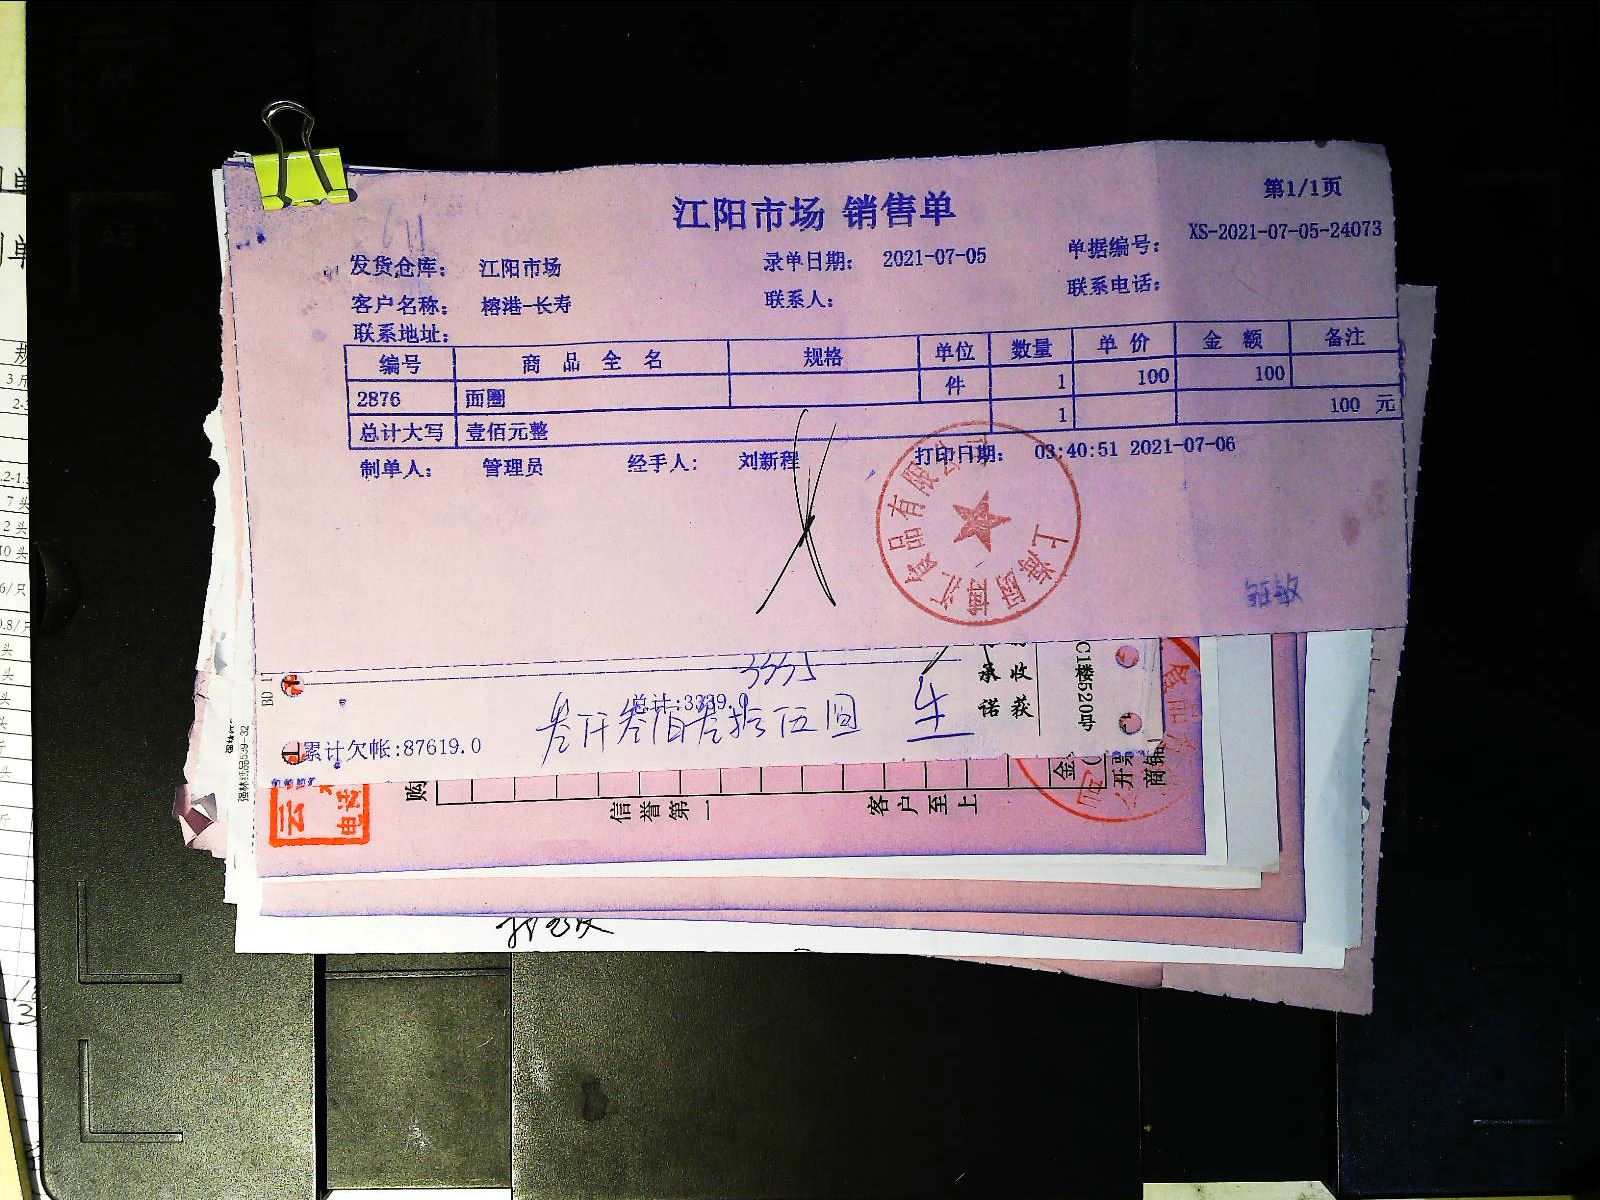 江阳市场 销售单
第1/1页
发货仓库： 江阳市场 录单日期： 2021-07-05 单据编号： XS-2021-07-05-24073
客户名称： 榕港-长寿 联系人： 联系电话：
联系地址：
编号 商 品 全 名 规格 单位 数量 单 价 金 额 备注
2876 面圈 件 1 100 100
总计大写 壹佰元整 1 100 元
制单人： 管理员 经手人： 刘新程 打印日期： 03:40:51 2021-07-06
食品有限公司
上海
3335
总计:3339.0
叁仟叁佰叁拾伍圆
累计欠帐:87619.0
承诺
收获
C1楼520号
购
信誉第一
客户至上
金
开票